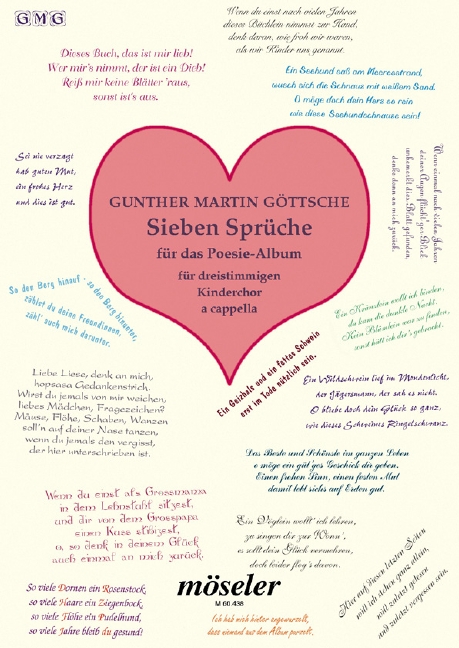 GMG
Wenn du einst nach vielen Jahren
dieses Büchlein nimmst zur Hand,
denk daran, wie froh wir waren,
als wir Kinder uns genannt.
Dieses Buch, das ist mir lieb!
Wer mir's nimmt, der ist ein Dieb!
Reiß mir keine Blätter 'raus,
sonst ist's aus.
Ein Seehund saß am Meeresstrand,
wusch sich die Schnauz mit weißem Sand.
O möge doch dein Herz so rein
wie diese Seehundschnauze sein!
Sei nie verzagt
hab guten Mut,
ein frohes Herz
und dies ist gut.
Wenn einmal nach vielen Jahren
deiner Augen flücht'ger Blick
unbemerkt dies Blatt gefunden,
denke dann an mich zurück.
GUNTHER MARTIN GÖTTSCHE
Sieben Sprüche
für das Poesie-Album
für dreistimmigen
Kinderchor
a cappella
So den Berg hinauf - so den Berg hinunter,
zählst du deine Freundinnen,
zähl' auch mich darunter.
Ein Kränzlein wollt ich binden,
da kam die dunkle Nacht.
Kein Blümlein war zu finden,
sonst hätt ich dir's gebracht.
Ein Geizhals und ein fettes Schwein
erst im Tode nützlich sein.
Liebe Liese, denk an mich,
hopsasa Gedankenstrich.
Wirst du jemals von mir weichen,
liebes Mädchen, Fragezeichen?
Mäuse, Flöhe, Schaben, Wanzen
soll'n auf deiner Nase tanzen,
wenn du jemals den vergisst,
der hier unterschrieben ist.
Ein Wildschwein lief im Mondenlicht,
der Jägersmann, der sah es nicht.
O bliebe doch dein Glück so ganz,
wie dieses Schweines Ringelschwanz.
Das Beste und Schönste im ganzen Leben
o möge ein gut'ges Geschick dir geben.
Einen frohen Sinn, einen festen Mut
damit lebt sichs auf Erden gut.
Wenn du einst als Grossmama
in dem Lehnstuhl sitzest,
und dir von dem Grosspapa
einen Kuss stibitzest,
o, so denk in deinem Glück
auch einmal an mich zurück.
Ein Vöglein wollt' ich lehren,
zu singen dir zur Wonn',
es sollt dein Glück vermehren,
doch leider flog's davon.
Hier auf diesen letzten Seiten
will ich daher ganz allein,
will zuletzt gelesen
und zuletzt vergessen sein.
So viele Dornen ein Rosenstock,
so viele Haare ein Ziegenbock,
so viele Flöhe ein Pudelhund,
so viele Jahre bleib du gesund!
möseler
M 60.436
Ich hab mich hinten angewurzelt,
dass niemand aus dem Album purzelt.